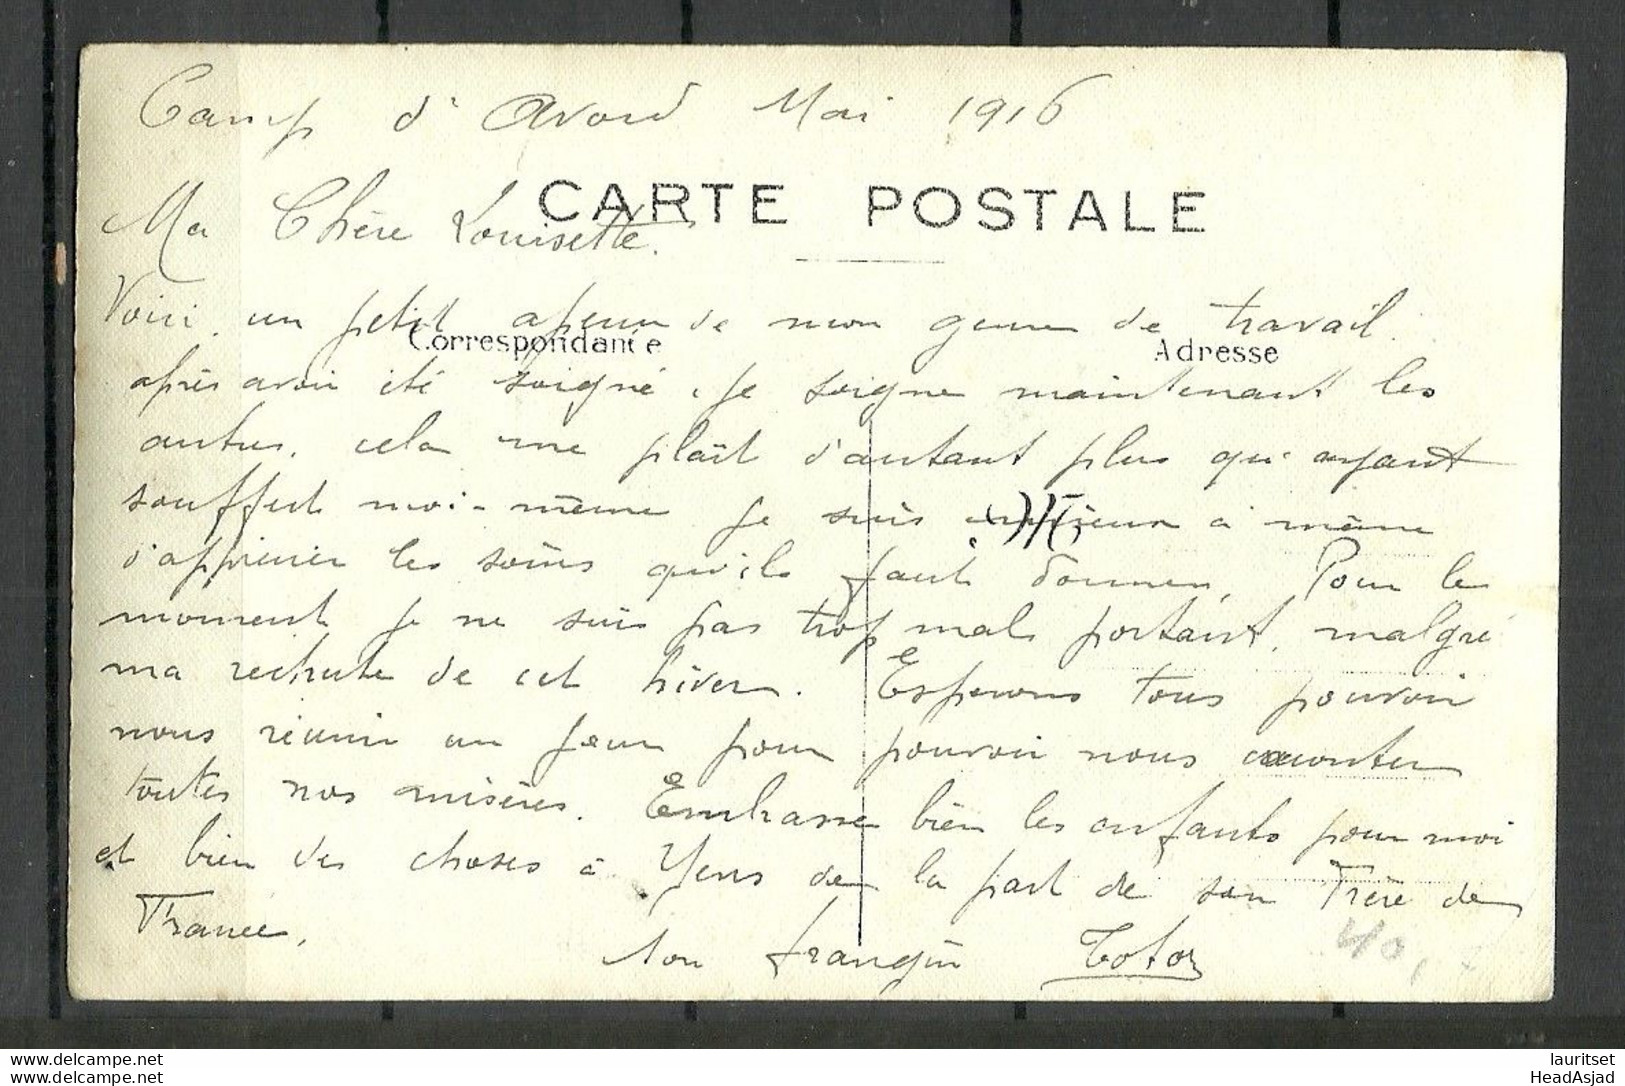 Camp d'Avord Mai 1916
CARTE POSTALE
Ma Chère Louisette.
Voici un petit aperçu de mon genre de travail.
Correspondance
Adresse
après avoir été soigné, je soigne maintenant les
autres, cela me plaît d'autant plus qu'ayant
souffert moi-même je suis à même
d'apprécier les soins qu'ils faut donner. Pour le
moment je ne suis pas trop mals portant, malgré
ma rechute de cet hiver. Esperons tous pouvoir
nous réunir un jour pour pouvoir nous raconter
toutes nos misères. Embrasse bien les enfants pour moi
et bien des choses à Yens de la part de son Frère de
France.
Ton frangin Totor
40,
delcampe.net
delcampe.net
lauritset
HeadAsjad